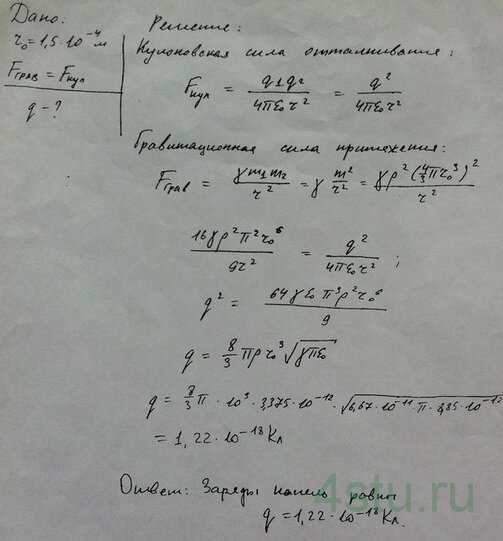 Дано:
r₀ = 1,5·10⁻⁴ м
Fграв = Fкул
q – ?
Решение:
Кулоновская сила отталкивания:
Fкул = q₁q₂ / 4πε₀r² = q² / 4πε₀r²
Гравитационная сила притяжения:
Fграв = γm₁m₂ / r² = γ m² / r² = γρ²(4/3 πr₀³)² / r²
16γρ²π²r₀⁶ / 9r² = q² / 4πε₀r² ;
q² = 64γε₀π³ρ²r₀⁶ / 9
q = 8/3 πρr₀³ √(γπε₀)
q = 8/3 π · 10³ · 3,375·10⁻¹² · √(6,67·10⁻¹¹·π·8,85·10⁻¹²
= 1,22·10⁻¹⁸ Кл
Ответ: Заряды капель равны
q = 1,22·10⁻¹⁸ Кл.
4stu.ru